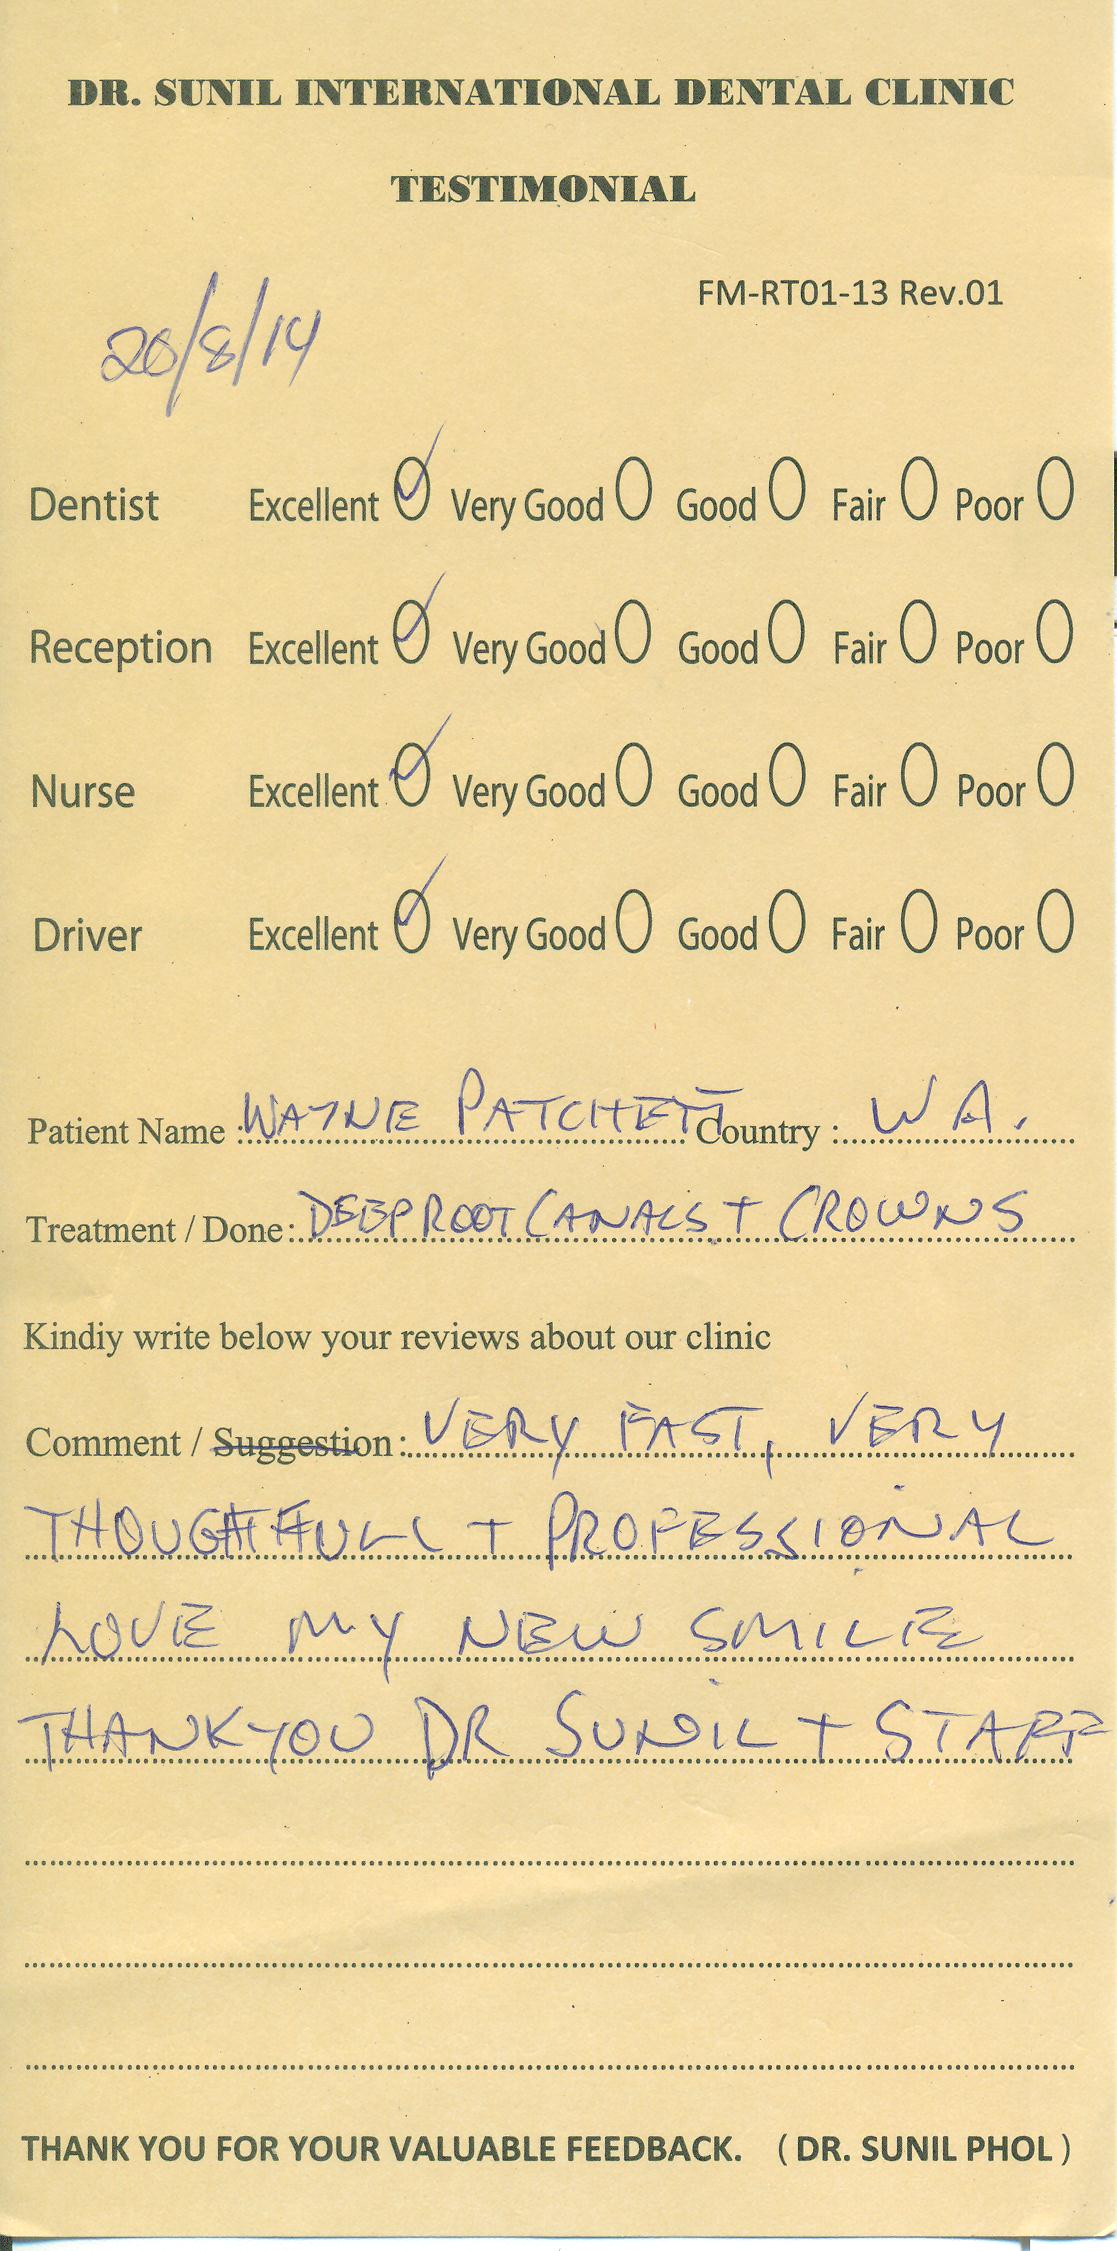 DR. SUNIL INTERNATIONAL DENTAL CLINIC
TESTIMONIAL
FM-RT01-13 Rev.01
26/8/14
Dentist Excellent Very Good Good Fair Poor
Reception Excellent Very Good Good Fair Poor
Nurse Excellent Very Good Good Fair Poor
Driver Excellent Very Good Good Fair Poor
Patient Name : WAYNE PATCHETT Country : WA.
Treatment / Done : DEEP ROOT CANALS + CROWNS
Kindiy write below your reviews about our clinic
Comment / Suggestion : VERY FAST, VERY
THOUGHTFULL + PROFESSIONAL
LOVE MY NEW SMILE
THANKYOU DR SUNIL + STAFF
THANK YOU FOR YOUR VALUABLE FEEDBACK. ( DR. SUNIL PHOL )